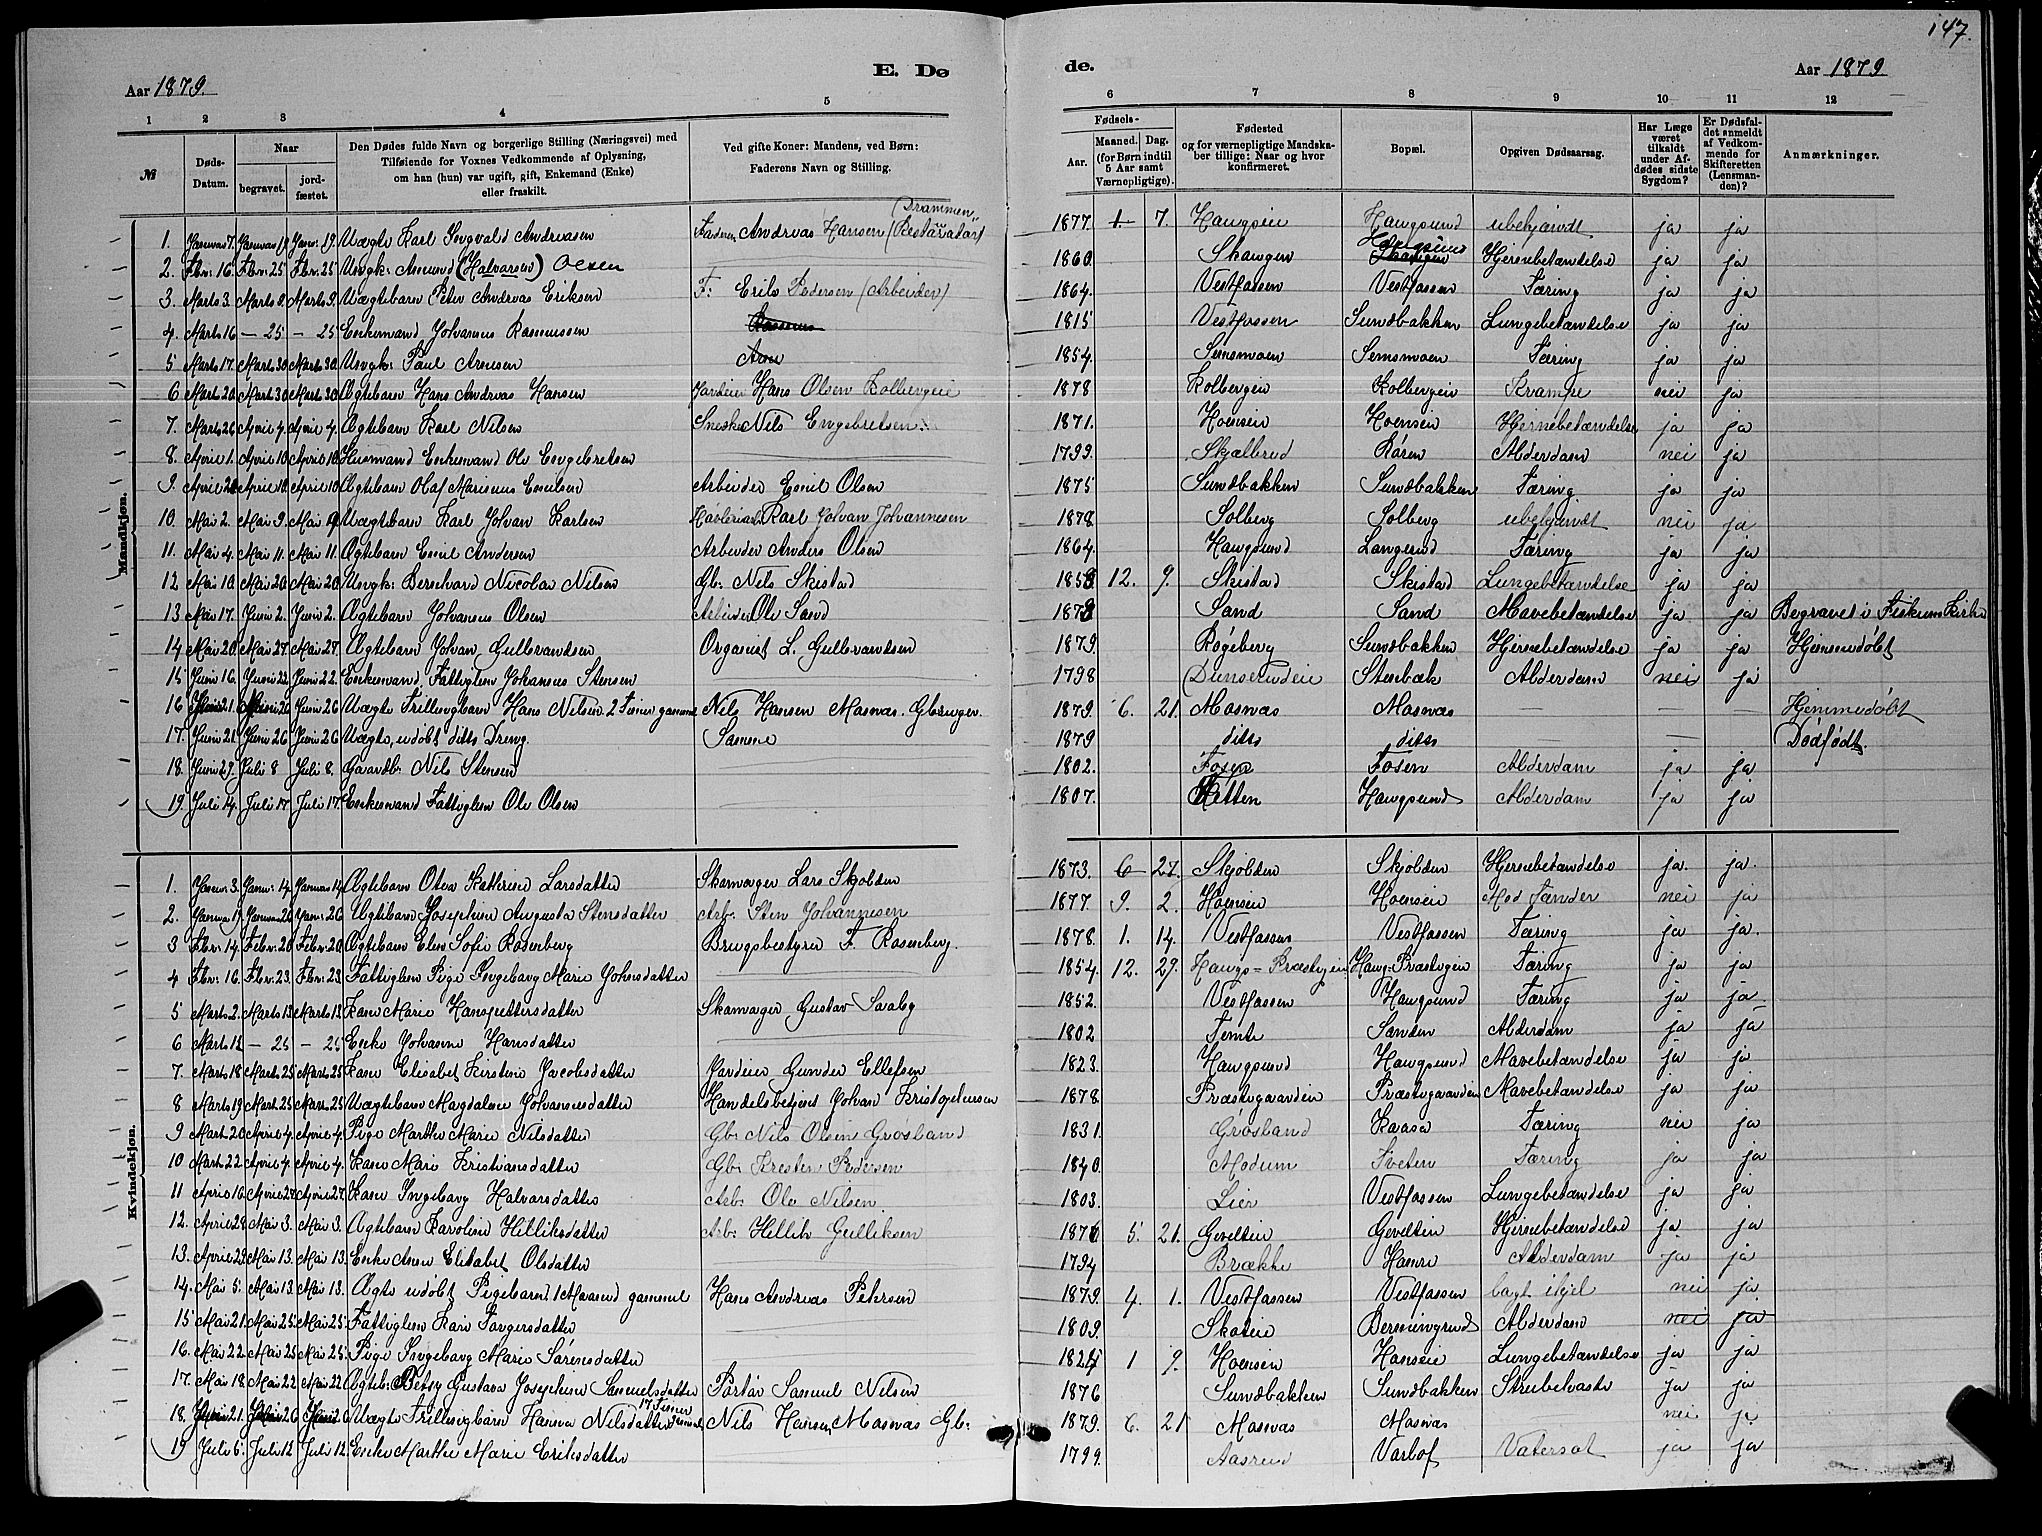 147.
E. Dø
de.
Aar 1879.
Aar 1879
1 2 3 4 5
6 7 8 9 10 11 12
№
Døds-Datum.
Naar
begravet.
jord-fæstet.
Den Dødes fulde Navn og borgerlige Stilling (Næringsvei) med Tilføiende for Voxnes Vedkommende af Oplysning, om han (hun) var ugift, gift, Enkemand (Enke) eller fraskilt.
Ved gifte Koner: Mandens, ved Børn: Faderens Navn og Stilling.
Fødsels-
Aar.
Maaned. Dag.
(for Børn indtil 5 Aar samt Værnepligtige).
Fødested og for værnepligtige Mandskaber tillige: Naar og hvor konfirmeret.
Bopæl.
Opgiven Dødsaarsag.
Har Læge været tilkaldt under Afdødes sidste Sygdom?
Er Dødsfaldet anmeldt af Vedkommende for Skifteretten (Lensmanden)?
Anmærkninger.
Mandkjøn.
1. Januar 7. Januar 19 Janu: 19. Uægte Karl Sigvald Andreasen Faderen Andreas Hansen (Restauratør) Drammen 1877 1 7. Haugseie Haugsund ubekjændt ja ja
2. Fbr. 16. Fbr. 25 Fbr. 25 Ungk: Amund (Halvorsen) Olsen 1860. Skaugen Haugsund Hjernebetændelse ja ja
3. Marts 3. Marts 9. Marts 9. Uægtebarn Peter Andreas Eriksen F: Erik Pedersen (Arbeider) 1864. Vestfossen Vestfossen Tæring ja ja
4. Marts 16 — 25 — 25 Enkemand Johannes Rasmussen Rasmus 1815 Vestfossen Sundbakken Lungebetændelse ja ja
5 Marts 17. Marts 30 Marts 30. Ungk: Paul Arnesen Arne 1854. Semsmoen Semsmoen Tæring ja ja
6 Marts 20. Marts 30 Marts 30 Ægtebarn Hans Andreas Hansen Jordeier Hans Olsen Kolbergeie 1878 Kolbergeie Kolbergeie Krampe nei ja
7. Marts 26 April 4. April 4. Ægtebarn Karl Nilsen Snekker Nils Engebretsen 1871. Hoenseie Hoenseie Hjernebetændelse ja ja
8. April 1. April 10 April 10. Husmand Enkemand Ole Engebretsen 1799. Skjælbred Røren Alderdom nei ja
9. April 2 April 10. April 10 Ægtebarn Olaf Marinus Emilsen Arbeider Emil Olsen 1875 Sundbakken Sundbakken Tæring ja ja
10. Mai 2. Mai 9. Mai 9. Uægtebarn Karl Johan Karlsen Karl Johan Johannesen 1878 Solberg Solberg ubekjændt nei ja
11. Mai 4. Mai 11. Mai 11. Ægtebarn Emil Andersen Arbeider Anders Olsen 1864. Haugsund Langerud Tæring ja ja
12 Mai 10. Mai 20 Mai 20. Ungk: Bernhard Nicolai Nilsen Gb: Nils Skistad 1858 12. 9. Skistad Skistad Lungebetændelse ja ja
13 Mai 17. Juni 2. Juni 2. Ægtebarn Johannes Olsen Arbeider Ole Sand 1878 Sand Sand Mavebetændelse ja ja Begravet i Fiskum Kirke
14 Mai 20. Mai 27 Mai 27 Ægtebarn Johan Gulbrandsen Organist L. Gulbrandsen 1879. Røgeberg Sundbakken Hjernebetændelse ja ja Hjemmedøbt
15 Juni 16. Juni 22. Juni 22. Enkemand, Fattiglem Johannes Stensen 1798 Dunserudeie Stenbæk Alderdom nei ja
16 Juni 21. Juni 26 Juni 26 Uægte Trillingbarn Hans Nilsen 2 Timer gammel Nils Hansen Masnæs. Gbruger. 1879 6. 21. Masnæs Masnæs — — — Hjemmedøbt
17. Juni 21 Juni 26 Juni 26 Uægte, udøbt ditto Dreng. Samme 1879 ditto ditto — — Dødfødt.
18. Juni 29. Juli 8 Juli 8. Gaardb: Nils Stensen 1802. Fosen Fosen Alderdom ja ja
19 Juli 14. Juli 17 Juli 17. Enkemand Fattiglem Ole Olsen 1807. Retten Haugsund Alderdom ja ja
Kvindekjøn.
1. Januar 3. Janu: 14. Januar 14 Ægtebarn Olea Kathrine Larsdatter Skomager Lars Skjolden 1873. 6 27. Skjolden Skjolden Hjernebetændelse ja. ja.
2. Januar 19. Januar 26 Janu: 26 Ægtebarn Josephine Augusta Stensdatter Arb: Sten Johannesen 1877. 9. 2. Hoenseie Hoenseie Mod Tænder nei ja
3 Fbr: 14. Febr. 20 Fbr: 20 Ægtebarn Elen Sofie Rosenberg Brugsbestyrer F. Rosenberg. 1878. 1. 14. Vestfossen Vestfossen Tæring ja ja.
4 Fbr: 16. Fbr. 23. Fbr: 23. Fattiglem Pige Ingeborg Marie Johnsdatter 1854. 12. 29. Haugs=Præstegien Haugs Præstegien Tæring ja ja
5 Marts 2. Marts 13 Marts 13 Kone Marie Hanspettersdatter Skomager Gustav Saaby 1852. Vestfossen Haugsund Tæring ja ja
6 Marts 12 — 25 — 25 Enke Johanne Hansdatter 1802 Temte Sanden Alderdom ja ja
7. Marts 18 Marts 25 Marts 25 Kone Elisabet Kirstine Jacobsdatter Jordeier Gunder Ellefsen 1823. Haugsund Haugsund Mavebetændelse ja ja
8 Marts 19 Mart. 25 Marts 25 Uægtebarn Magdalene Johannesdatter Handelsbetjent Johan Kristophersen 1878. Præstegaardeie Præstegaardeie Mavebetændelse ja ja
9 Mart. 20 April 4. April 4. Pige Marthe Marie Nilsdatter Gb: Nils Olsen Grøsland 1831. Grøsland Kaasa Tæring nei ja
10 Marts 22 April 4. April 4. Kone Mari Kristiansdatter Gb: Kresten Pedersen 1840. Modum Tveten Tæring ja ja
11 April 16. April 27. April 27. Kone Ingeborg Halvorsdatter Arb: Ole Nilsen. 1803. Lier Vestfossen Lungebetændelse ja ja
12. April 28 Mai 3. Mai 3. Ægtebarn Karoline Helliksdatter Arb: Hellik Gulliksen 1876 5. 21. Geveltein Geveltein Hjernebetændelse ja ja
13. April 29 Mai 13. Mai 13. Enke Anne Elisabet Olsdatter 1794 Brække Hamre Alderdom ja ja
14. Mai 5. Mai 13. Mai 13. Ægte udøbt Pigebarn 1 Maaned gammel Hans Andreas Petersen 1879. 4. 1. Vestfossen Vestfossen lagt ihjel nei ja
15. Mai 21. Mai 25. Mai 25. Fattiglem Kari Torgersdatter 1809. Skoteie Alderdom nei ja
16. Mai 22. Mai 25 Mai 25: Pige Ingeborg Marie Sørensdatter 1824 1 9. Hoenseie Honseie Lungebetændelse ja ja
17. Mai 18. Mai 22 Mai 22 Ægteb: Betsy Gustava Josephine Samuelsdatter Portør Samuel Nilsen 1876 Sundbakken Sundbakken Strubehoste ja ja
18. Juni 21. Juni 26 Juni 26 Uægte Trillingbarn Hanna Nilsdatter 17 Timer gammel Nils Hansen Masnæs Gb: 1879. 6. 21 Masnæs Masnæs nei ja
19 Juli 5. Juli 12. Juli 12. Enke Marthe Marie Eriksdatter 1799. Aasrud Varlof Vatersot ja ja